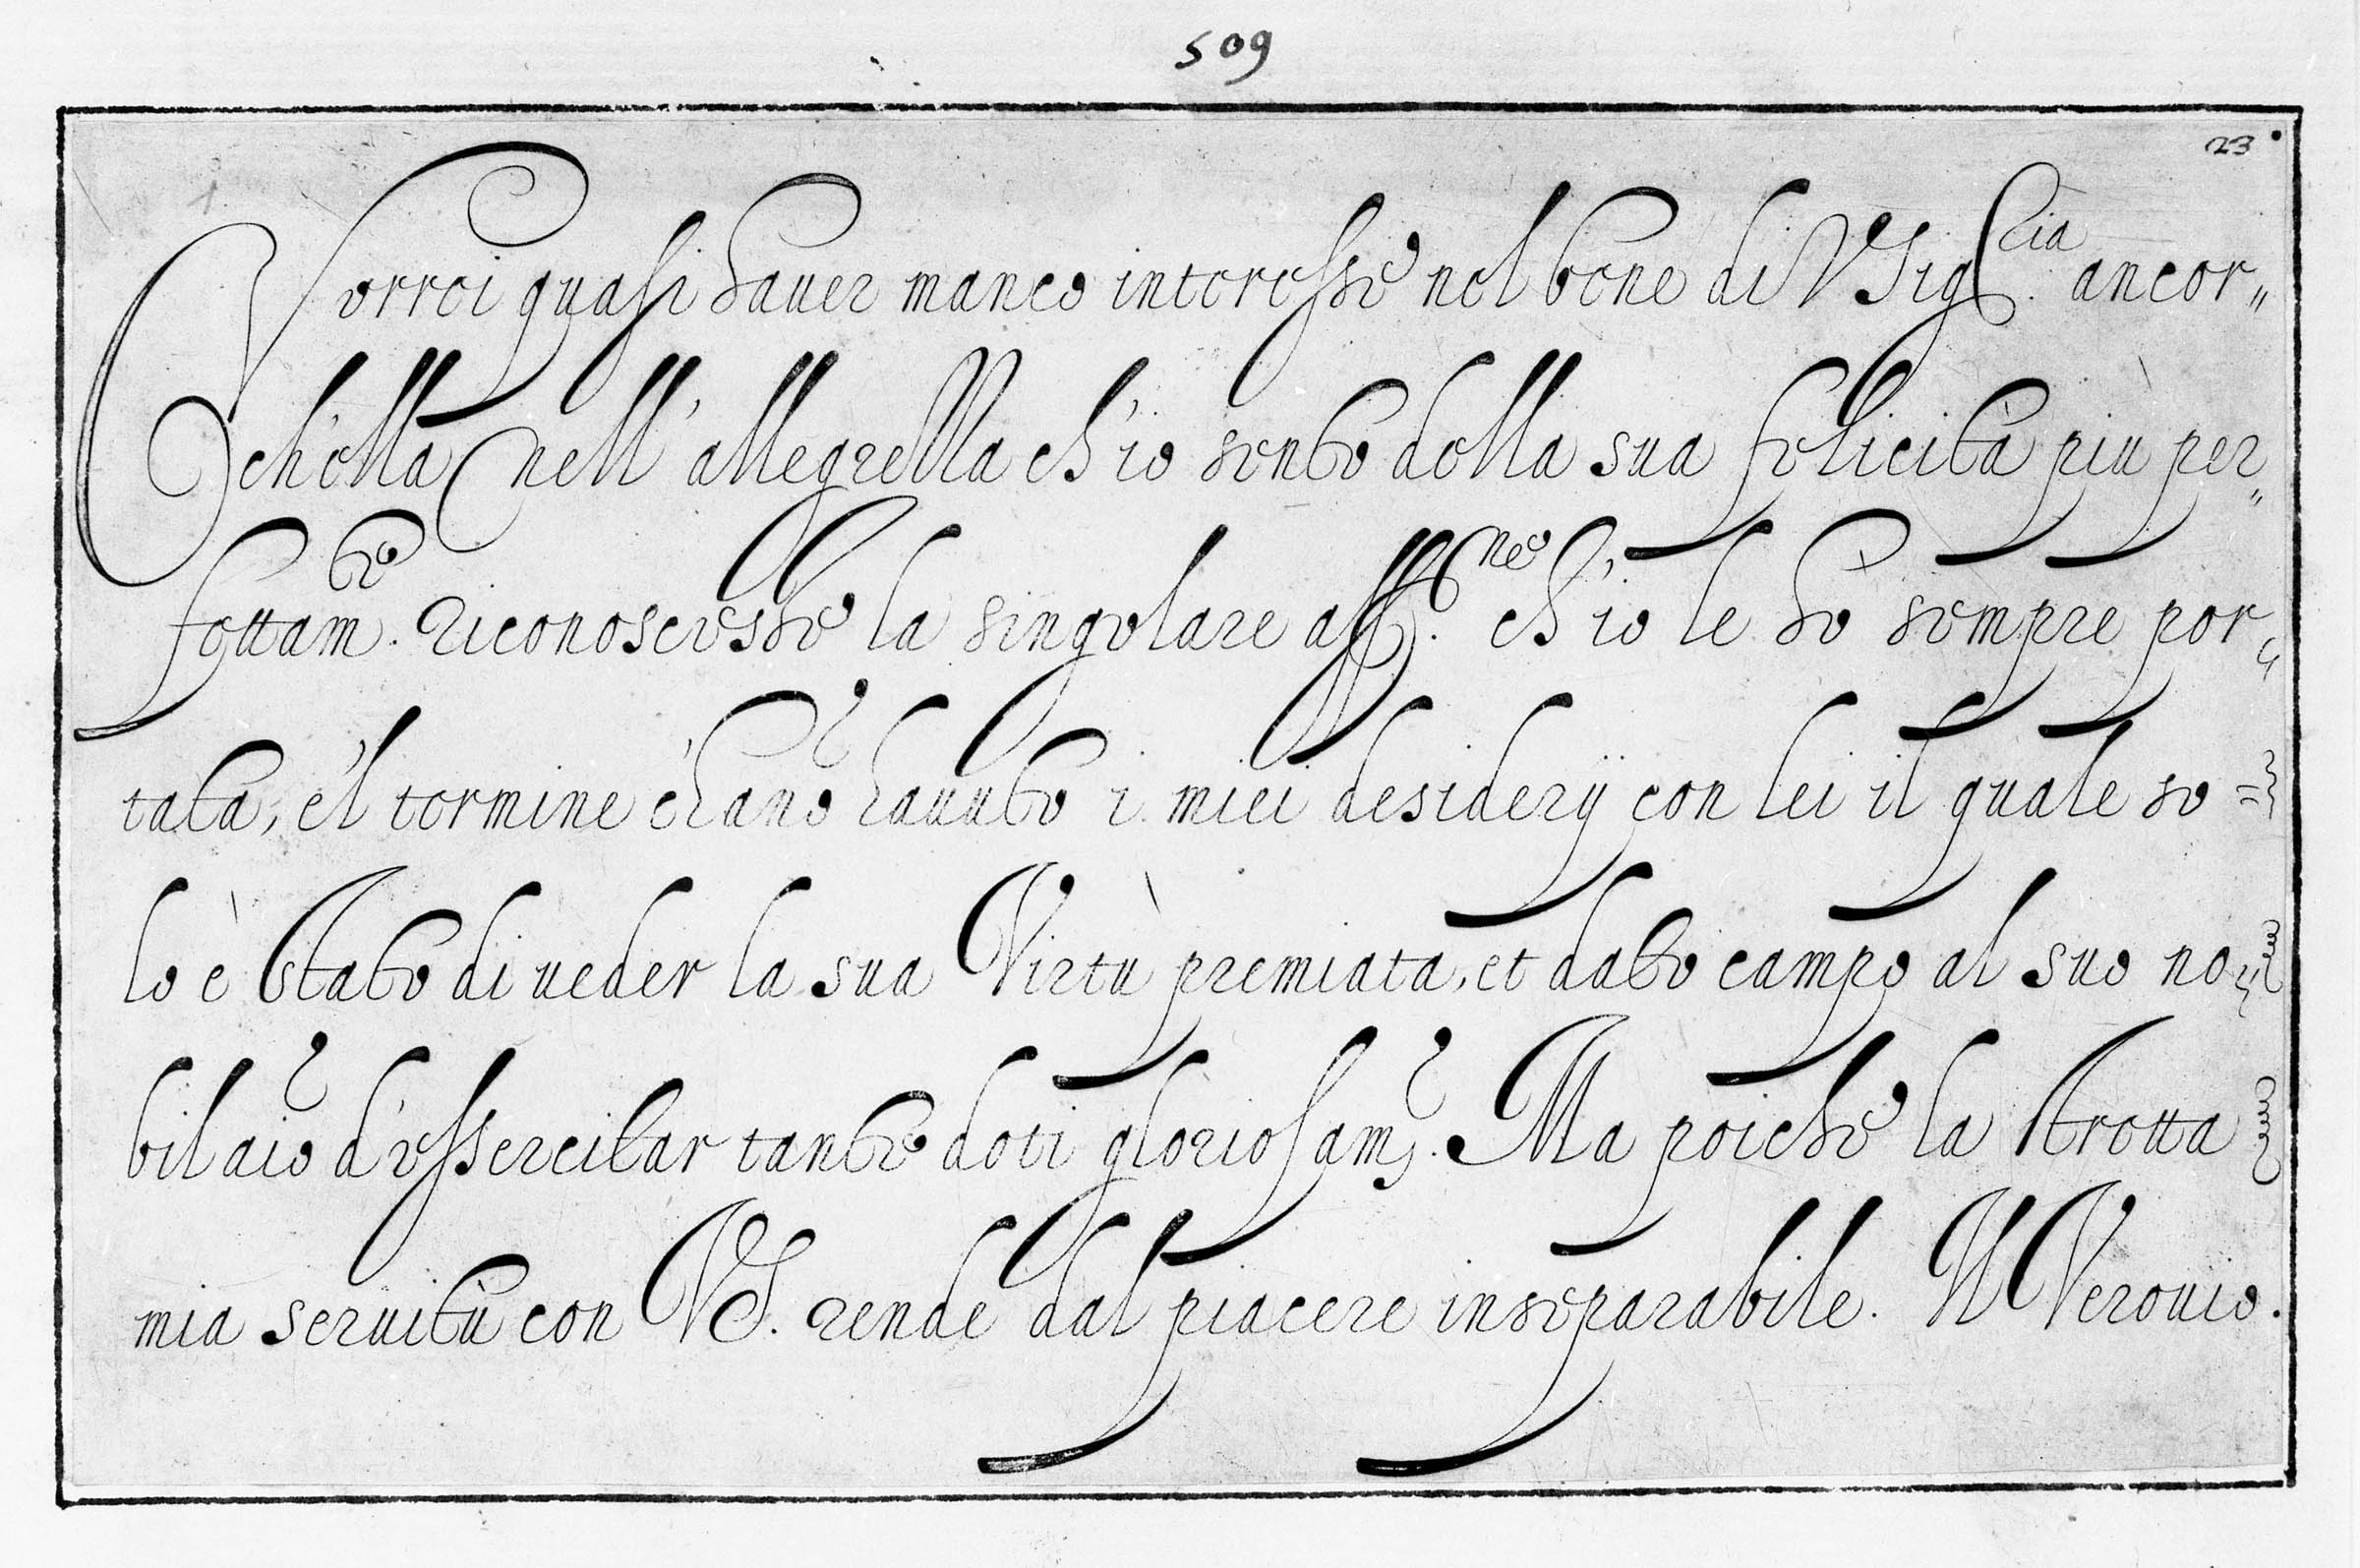 509
23
Vorrei quasi hauer manco interesse nel bene di V Sig.ria ancor„
ch'ella nell'allegrezza ch'io sento della sua felicità più per„
fettam.te riconoscesse la singolare aff.ne ch'io le hò sempre por„
tata, e'l termine c'hano hauuto i miei desiderÿ con lei il quale so=
lo è stato di ueder la sua Virtù premiata, et dato campo al suo no„
bil aio d'essercitar tante doti gloriosam. Ma poiche la stretta
mia seruitù con V.S. rende dal piacere inseparabile. Il Verouio.